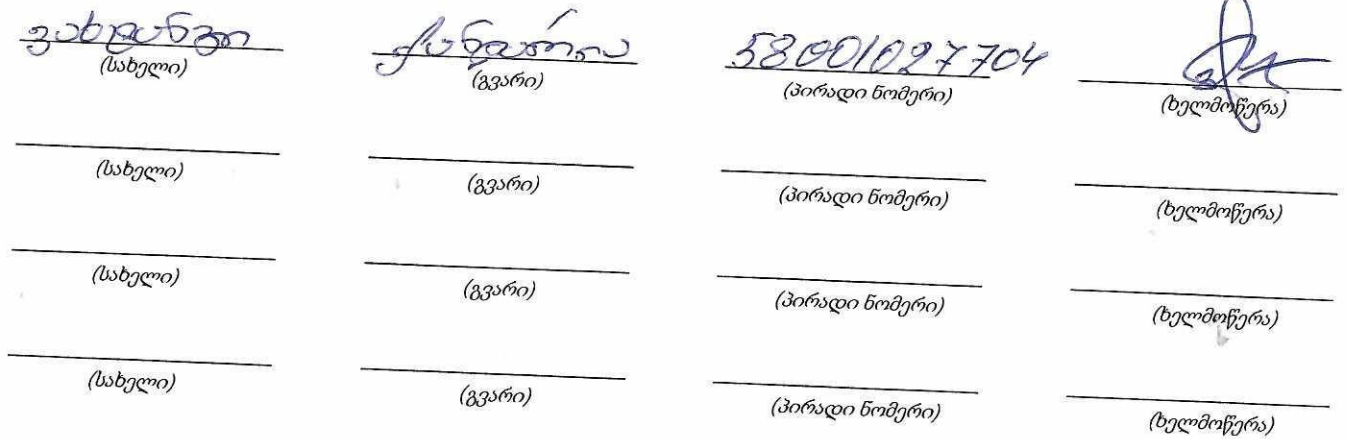 ვახტანგი ქანდარია 58001027704
(სახელი) (გვარი) (პირადი ნომერი) (ხელმოწერა)
(სახელი) (გვარი) (პირადი ნომერი) (ხელმოწერა)
(სახელი) (გვარი) (პირადი ნომერი) (ხელმოწერა)
(სახელი) (გვარი) (პირადი ნომერი) (ხელმოწერა)